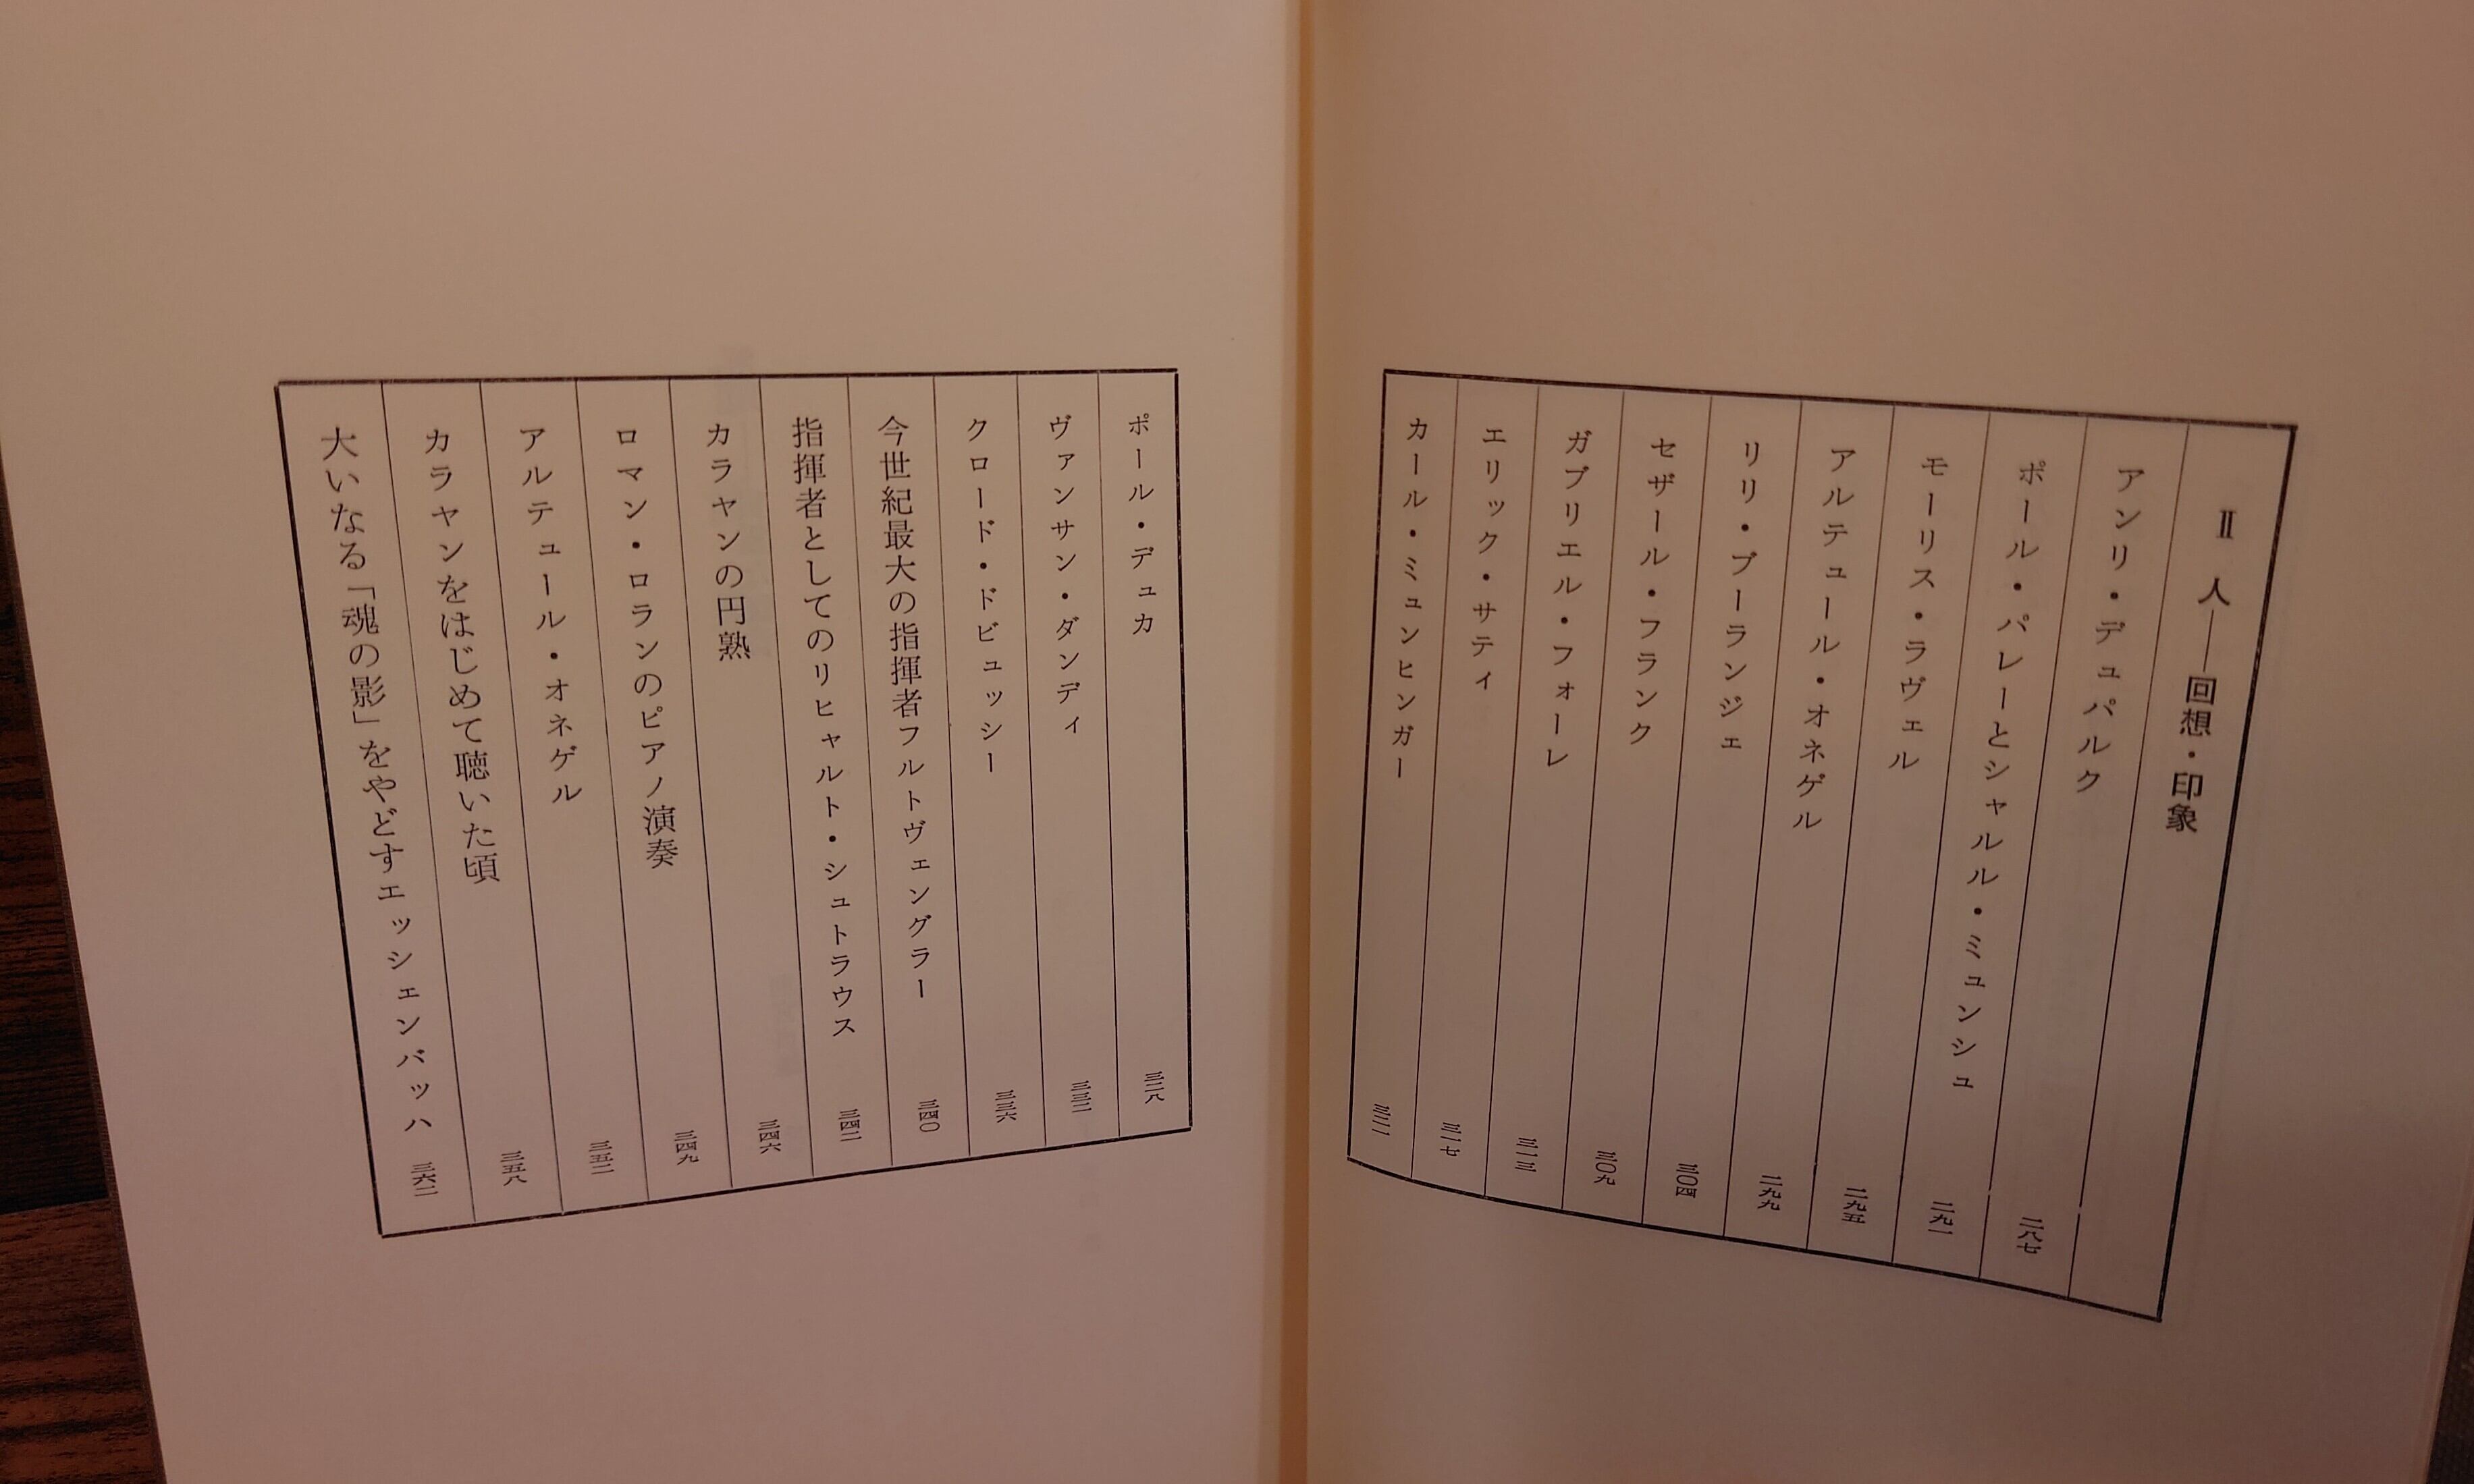 Ⅱ 人——回想・印象
アンリ・デュパルク 二八七
ポール・パレーとシャルル・ミュンシュ 二九一
モーリス・ラヴェル 二九五
アルテュール・オネゲル 二九九
リリ・ブーランジェ 三〇四
セザール・フランク 三〇九
ガブリエル・フォーレ 三一三
エリック・サティ 三一七
カール・ミュンヒンガー 三二一
ポール・デュカ 三二八
ヴァンサン・ダンディ 三三二
クロード・ドビュッシー 三三六
今世紀最大の指揮者フルトヴェングラー 三四〇
指揮者としてのリヒャルト・シュトラウス 三四二
カラヤンの円熟 三四六
ロマン・ロランのピアノ演奏 三四九
アルテュール・オネゲル 三五二
カラヤンをはじめて聴いた頃 三五八
大いなる「魂の影」をやどすエッシェンバッハ 三六二